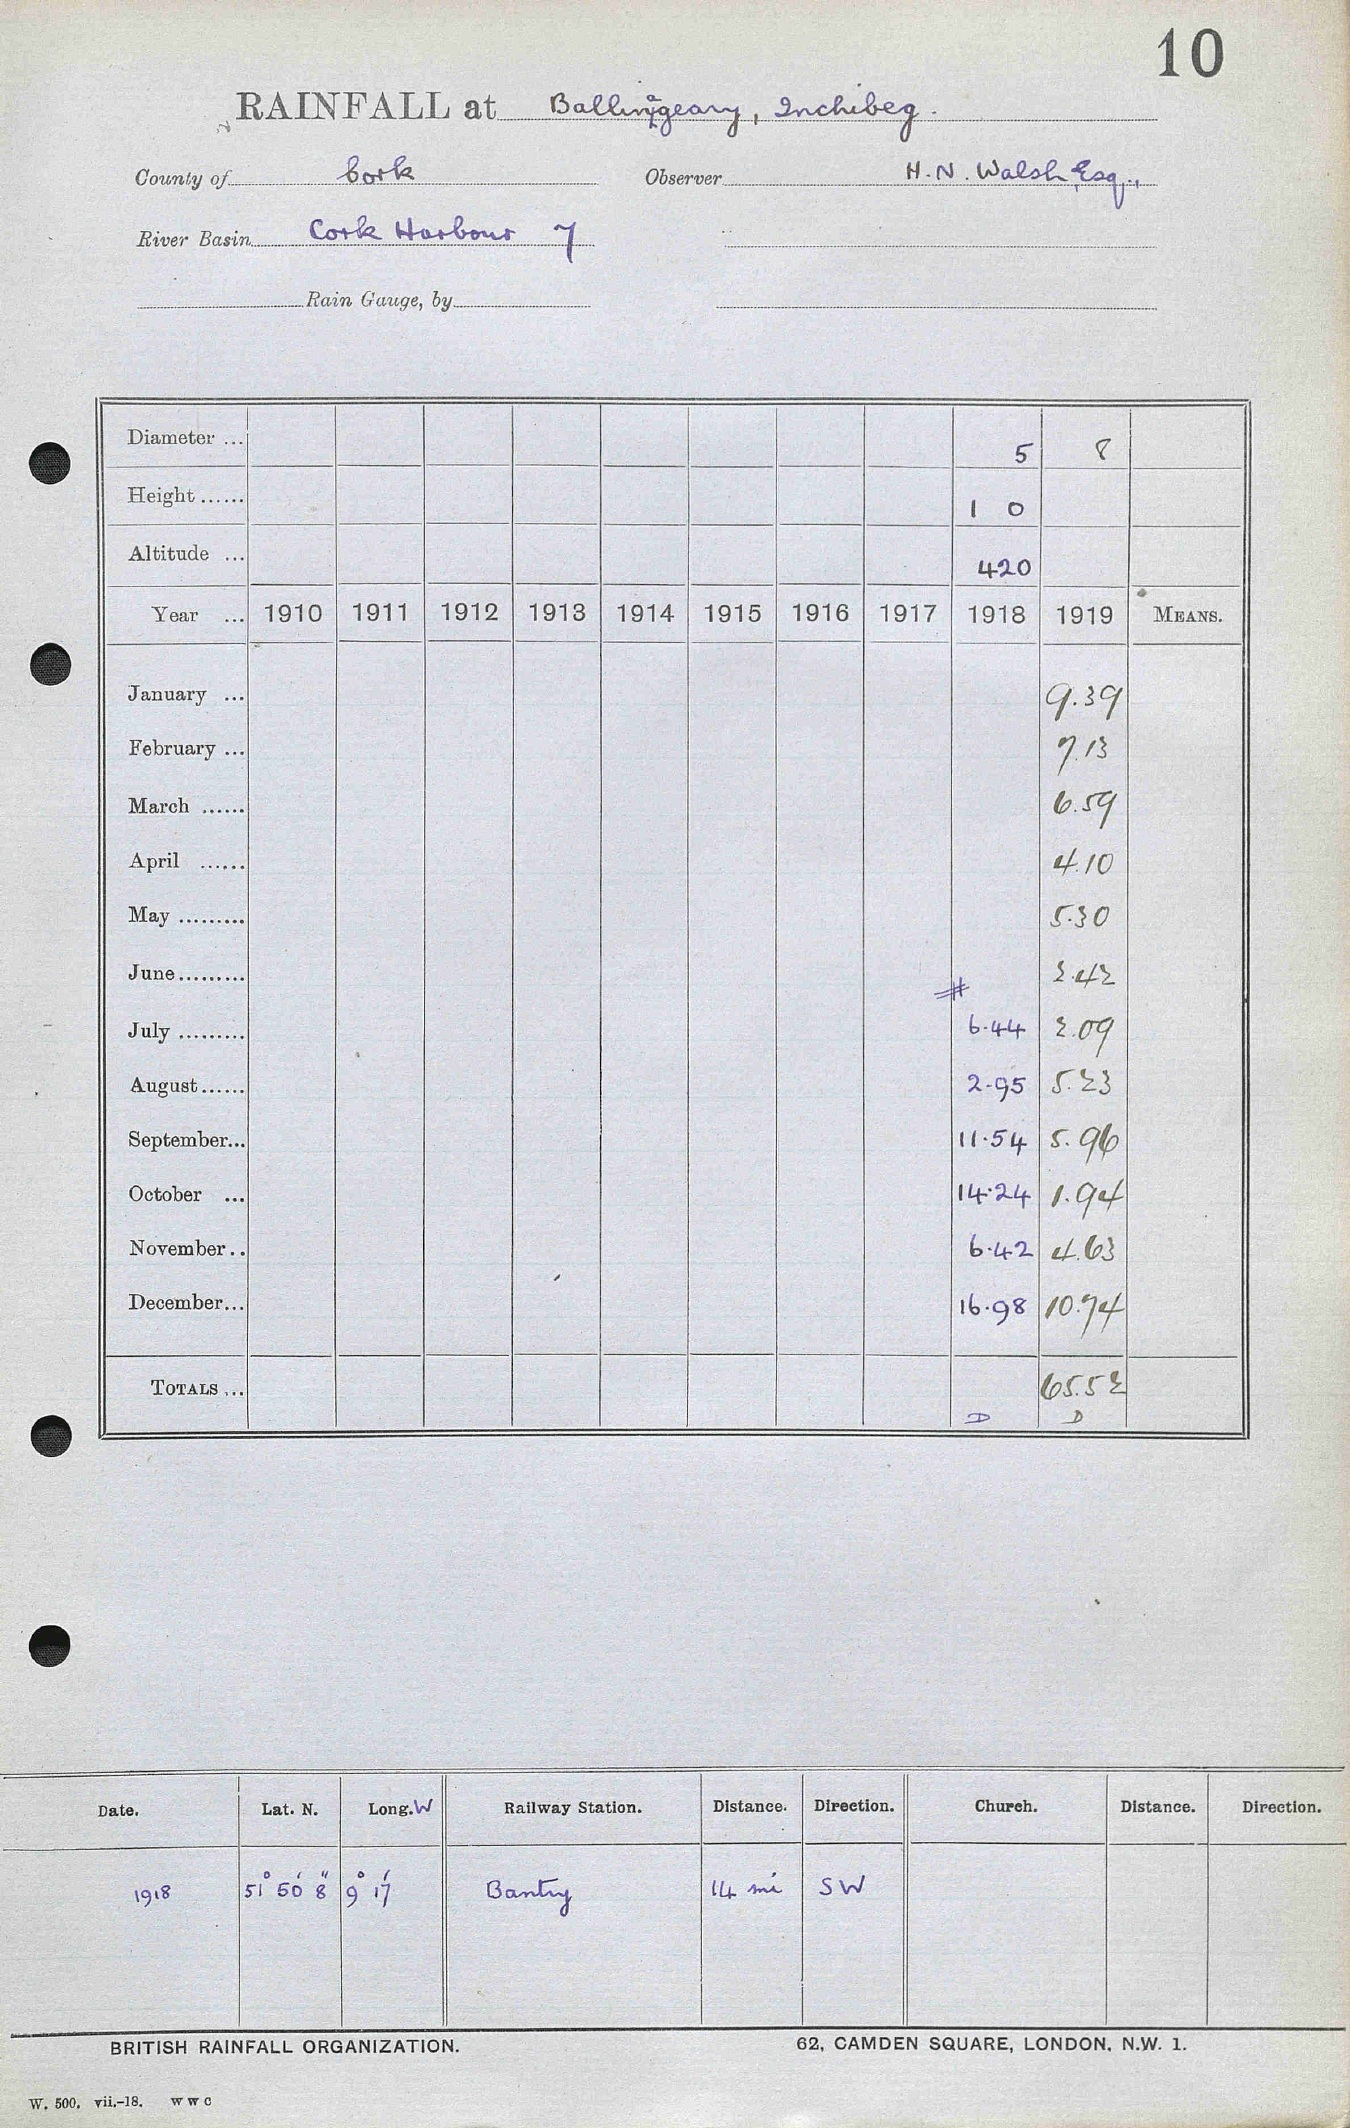 10
RAINFALL at Ballingeary, Inchibeg.
County of Cork Observer H. N. Walsh, Esq.,
River Basin Cork Harbour 7
Rain Gauge, by
Diameter ... 5 8
Height ...... 1 0
Altitude ... 420
Year ... 1910 1911 1912 1913 1914 1915 1916 1917 1918 1919 MEANS.
January ... 9.39
February ... 7.13
March ...... 6.59
April ...... 4.10
May ......... 5.30
June ......... 2.42
July ......... 6.44 2.09
August ...... 2.95 5.23
September... 11.54 5.96
October ... 14.24 1.94
November .. 6.42 4.63
December... 16.98 10.74
TOTALS ... 65.52
D D
Date. Lat. N. Long. W Railway Station. Distance. Direction. Church. Distance. Direction.
1918 51° 50' 8" 9° 17' Bantry 14 mi SW
BRITISH RAINFALL ORGANIZATION. 62, CAMDEN SQUARE, LONDON, N.W. 1.
W. 500. vii.-18. W W C